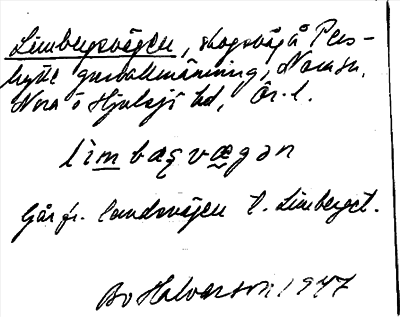 Limbergsvägen, skogsväg å Pers-
hytte gruvallmänning, Nora sn,
Nora o Hjulsjö bd, Ör. l.
lìmbaʂvægən
Går fr. landsvägen t. Limberget.
Bo Halvarson 1947